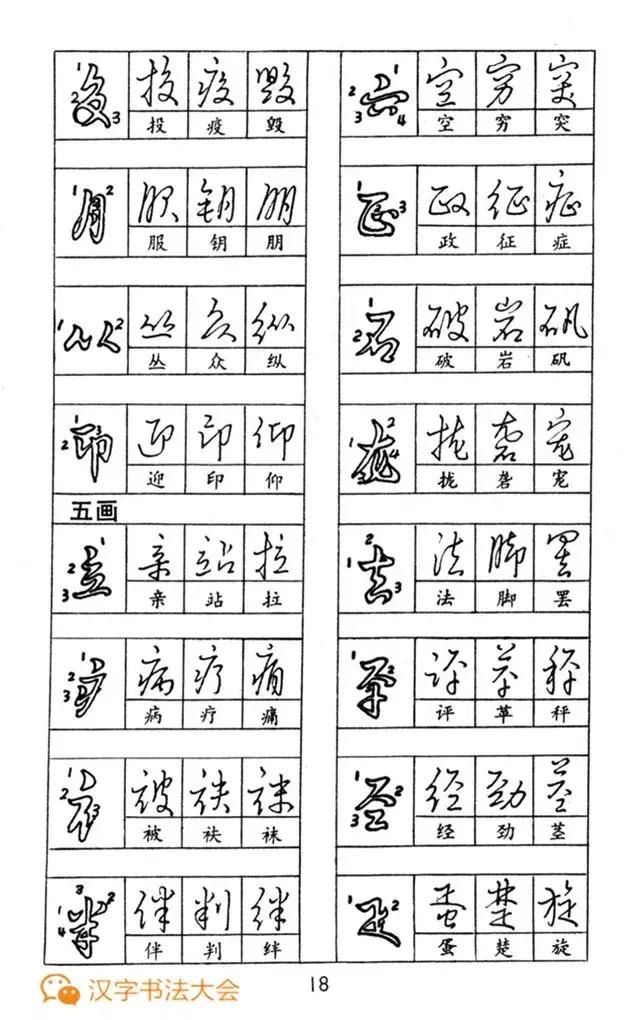 投 疫 毁
投 疫 毁
服 钥 朋
服 钥 朋
丛 众 纵
丛 众 纵
迎 印 仰
迎 印 仰
五画
亲 站 拉
亲 站 拉
病 疗 痛
病 疗 痛
被 袄 袜
被 袄 袜
伴 判 绊
伴 判 绊
空 穷 突
空 穷 突
政 征 症
政 征 症
破 岩 矾
破 岩 矾
拢 砻 宠
拢 砻 宠
法 脚 罢
法 脚 罢
评 苹 秤
评 苹 秤
经 劲 茎
经 劲 茎
蛋 楚 旋
蛋 楚 旋
18
汉字书法大会